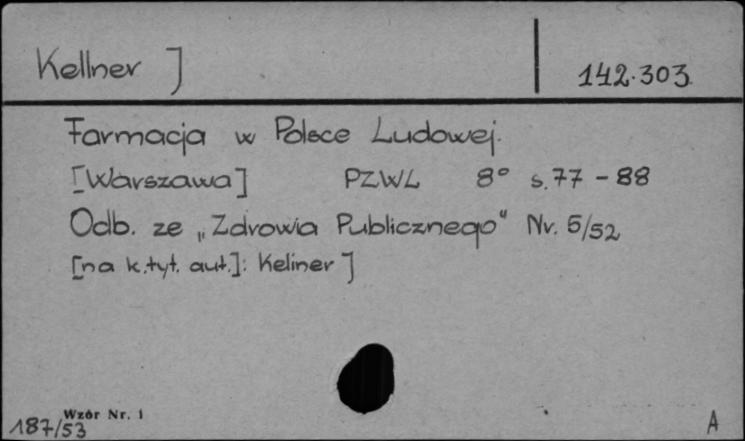 Kellner J
142.303
Farmacja w Polsce Ludowej.
[Warszawa] PZWL 8° s. 77 - 88
Odb. ze „Zdrowia Publicznego" Nr. 5/52
[na k.tyt. aut.]: Keliner J
Wzór Nr. 1
187/53
A